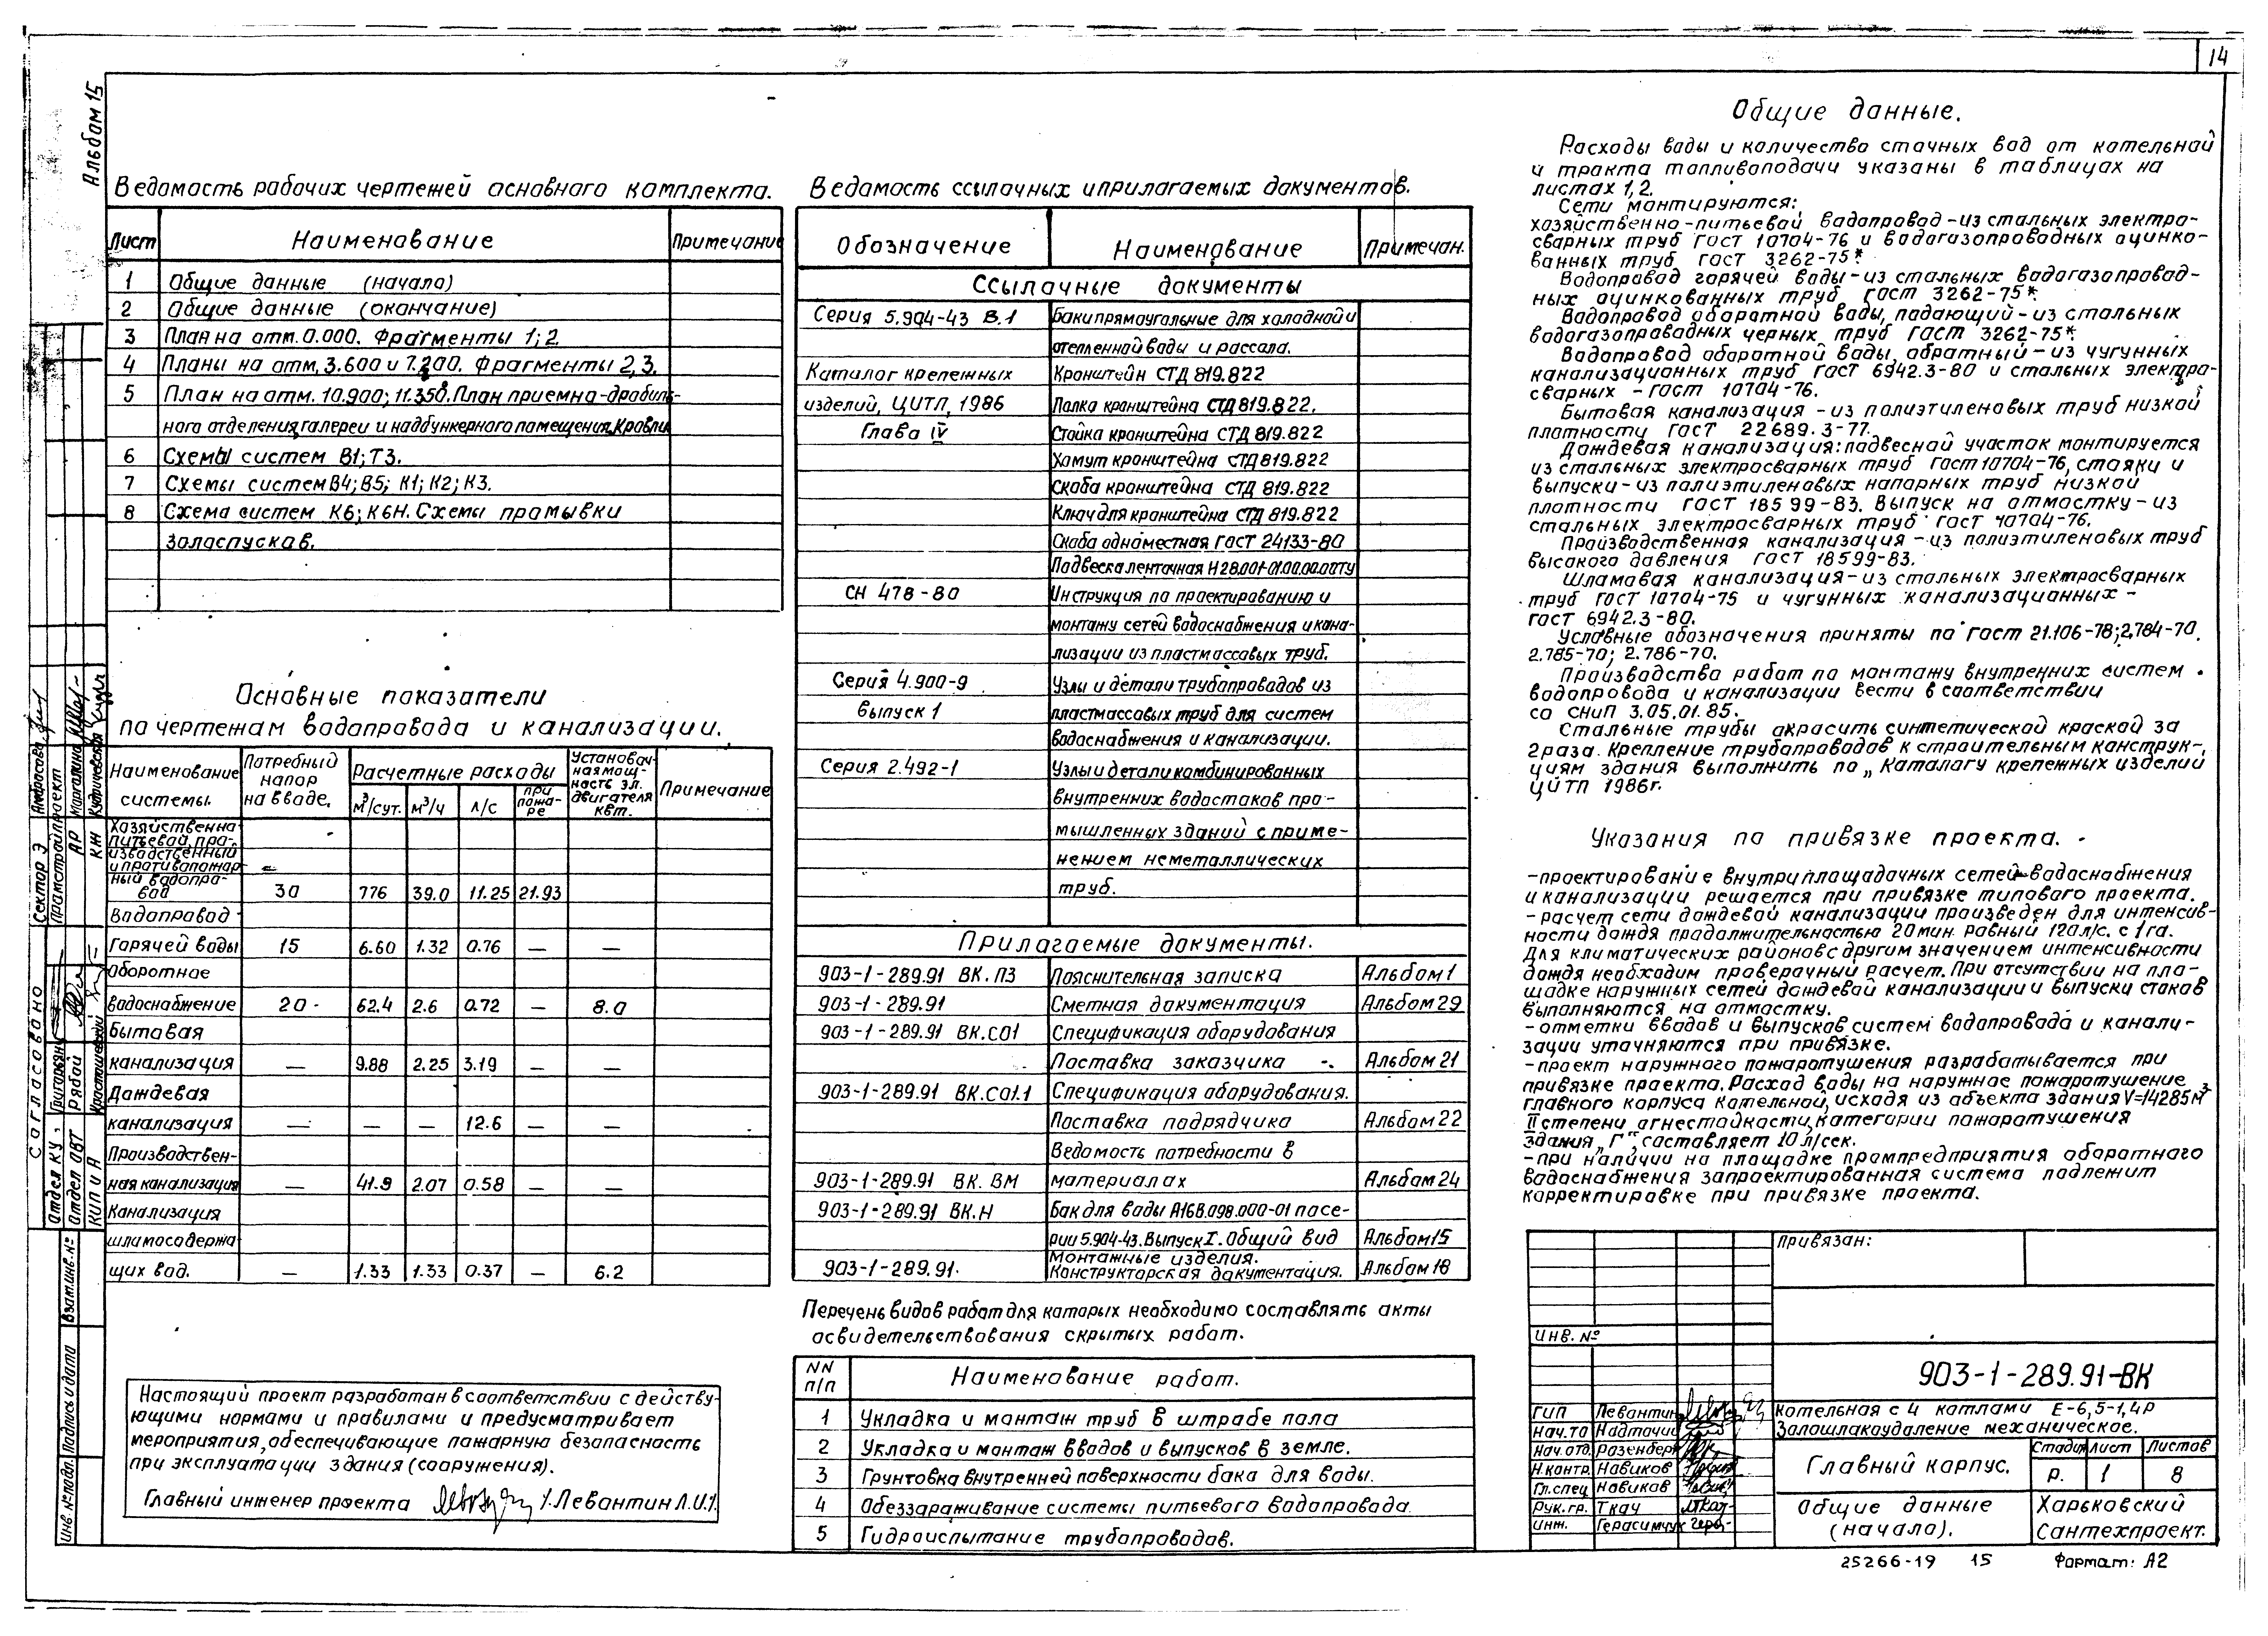 14
Альбом 15
Ведомость рабочих чертежей основного комплекта.
Лист Наименование Примечание
1 Общие данные (начало)
2 Общие данные (окончание)
3 План на отм. 0.000. Фрагменты 1; 2.
4 Планы на отм. 3.600 и 7.200. Фрагменты 2,3.
5 План на отм. 10.900; 11.350. План приемно-дробиль-
ного отделения, галереи и надбункерного помещения. Кровли
6 Схемы систем В1; Т3.
7 Схемы систем В4; В5; К1; К2; К3.
8 Схема систем К6; К6Н. Схемы промывки
золоспусков.
Основные показатели
по чертежам водопровода и канализации.
Наименование системы. Потребный напор на вводе. Расчетные расходы Установоч-ная мощ-ность эл. двигателя квт. Примечание
м³/сут. м³/ч л/с при пожа-ре
Хозяйственно-
питьевой, про-
изводственный
и противопожар
ный водопро-
вод 30 776 39.0 11.25 21.93
Водопровод
горячей воды 15 6.60 1.32 0.76 — —
Оборотное
водоснабжение 20 62.4 2.6 0.72 — 8.0
Бытовая
канализация — 9.88 2.25 3.19 — —
Дождевая
канализация — — — 12.6 — —
Производствен-
ная канализация — 41.9 2.07 0.58 — —
Канализация
шламосодержа
щих вод. — 1.33 1.33 0.37 — 6.2
Настоящий проект разработан в соответствии с действу-
ющими нормами и правилами и предусматривает
мероприятия, обеспечивающие пожарную безопасность
при эксплуатации здания (сооружения).
Главный инженер проекта Левантин Л.И.
Ведомость ссылочных и прилагаемых документов.
Обозначение Наименование Примечан.
Ссылочные документы
Серия 5.904-43 В.1 Баки прямоугольные для холодной и
отепленной воды и рассола.
Каталог крепежных Кронштейн СТД 819.822
изделий, ЦИТП, 1986 Полка кронштейна СТД 819.822.
Глава IV Стойка кронштейна СТД 819.822
Хомут кронштейна СТД 819.822
Скоба кронштейна СТД 819.822
Ключ для кронштейна СТД 819.822
Скоба одноместная ГОСТ 24133-80
Подвеска ленточная Н28.001-01.00.00.00ТУ
СН 478-80 Инструкция по проектированию и
монтажу сетей водоснабжения и кана-
лизации из пластмассовых труб.
Серия 4.900-9 Узлы и детали трубопроводов из
выпуск 1 пластмассовых труб для систем
водоснабжения и канализации.
Серия 2.492-1 Узлы и детали комбинированных
внутренних водостоков про-
мышленных зданий с приме-
нением неметаллических
труб.
Прилагаемые документы.
903-1-289.91 ВК.ПЗ Пояснительная записка Альбом 1
903-1-289.91 Сметная документация Альбом 29
903-1-289.91 ВК.СО1 Спецификация оборудования
Поставка заказчика Альбом 21
903-1-289.91 ВК.СО1.1 Спецификация оборудования.
Поставка подрядчика Альбом 22
Ведомость потребности в
903-1-289.91 ВК. ВМ материалах Альбом 24
903-1-289.91 ВК.Н Бак для воды А16В.098.000-01 по се-
рии 5.904-43. Выпуск I. Общий вид Альбом 15
Монтажные изделия.
903-1-289.91. Конструкторская документация. Альбом 18
Перечень видов работ для которых необходимо составлять акты
освидетельствования скрытых работ.
NN п/п Наименование работ.
1 Укладка и монтаж труб в штрабе пола
2 Укладка и монтаж вводов и выпусков в земле.
3 Грунтовка внутренней поверхности бака для воды.
4 Обеззараживание системы питьевого водопровода.
5 Гидроиспытание трубопроводов.
Общие данные.
Расходы воды и количество сточных вод от котельной
и тракта топливоподачи указаны в таблицах на
листах 1,2.
Сети монтируются:
хозяйственно-питьевой водопровод - из стальных электро-
сварных труб ГОСТ 10704-76 и водогазопроводных оцинко-
ванных труб ГОСТ 3262-75*.
Водопровод горячей воды - из стальных водогазопровод-
ных оцинкованных труб ГОСТ 3262-75*.
Водопровод оборотной воды, подающий - из стальных
водогазопроводных черных труб ГОСТ 3262-75*.
Водопровод оборотной воды, обратный - из чугунных
канализационных труб ГОСТ 6942.3-80 и стальных электро-
сварных - ГОСТ 10704-76.
Бытовая канализация - из полиэтиленовых труб низкой
плотности ГОСТ 22689.3-77.
Дождевая канализация: подвесной участок монтируется
из стальных электросварных труб ГОСТ 10704-76, стояки и
выпуски - из полиэтиленовых напорных труб низкой
плотности ГОСТ 18599-83. Выпуск на отмостку - из
стальных электросварных труб ГОСТ 10704-76.
Производственная канализация - из полиэтиленовых труб
высокого давления ГОСТ 18599-83.
Шламовая канализация - из стальных электросварных
труб ГОСТ 10704-75 и чугунных канализационных -
ГОСТ 6942.3-80.
Условные обозначения приняты по ГОСТ 21.106-78; 2.784-70,
2.785-70; 2.786-70.
Производство работ по монтажу внутренних систем
водопровода и канализации вести в соответствии
со СНиП 3.05.01.85.
Стальные трубы окрасить синтетической краской за
2 раза. Крепление трубопроводов к строительным конструк-
циям здания выполнить по „Каталогу крепежных изделий
ЦИТП 1986г.
Указания по привязке проекта.
-проектирование внутриплощадочных сетей водоснабжения
и канализации решается при привязке типового проекта.
-расчет сети дождевой канализации произведен для интенсив-
ности дождя продолжительностью 20 мин. равный 120 л/с. с 1 га.
Для климатических районов с другим значением интенсивности
дождя необходим проверочный расчет. При отсутствии на пло-
щадке наружных сетей дождевой канализации и выпуски стоков
выполняются на отмостку.
-отметки вводов и выпусков систем водопровода и канали-
зации уточняются при привязке.
-проект наружного пожаротушения разрабатывается при
привязке проекта. Расход воды на наружное пожаротушение
главного корпуса котельной, исходя из объекта здания V=14285м³
II степени огнестойкости, категории пожаротушения
здания „Г", составляет 10 л/сек.
-при наличии на площадке промпредприятия оборотного
водоснабжения запроектированная система подлежит
корректировке при привязке проекта.
Привязан:
Инв. №
903-1-289.91-ВК
ГИП Левантин
Нач.то Надточий
Нач.отд. Розенберг
Н.контр. Новиков
Гл.спец Новиков
Рук.гр. Ткач
Инж. Герасимчук
Котельная с 4 котлами Е-6,5-1,4Р
Золошлакоудаление механическое.
Главный корпус.
Стадия Лист Листов
Р. 1 8
Общие данные
(начало).
Харьковский
Сантехпроект.
25266-19 15 Формат: А2
Согласовано
Сектор Э
Промстройпроект
АР Марголина
КЖ
Отдел КУ
Отдел ОВТ Рябой
КИП и А
Взам.инв.№
Подпись и дата
Инв.№ подл.